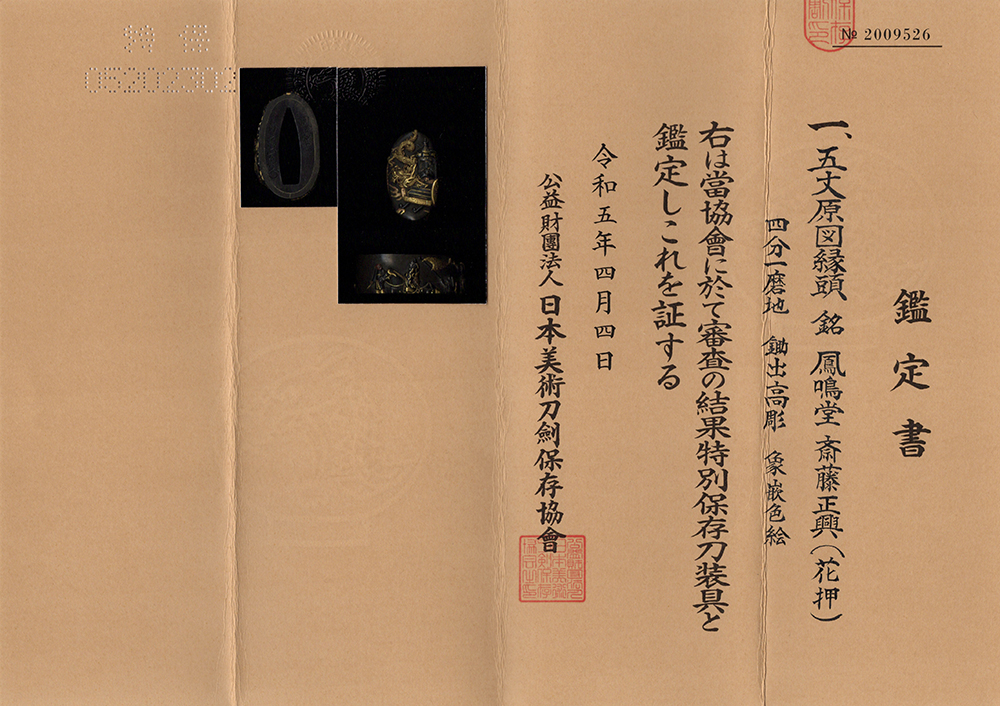 № 2009526
鑑定書
一、五丈原図縁頭 銘 鳳鳴堂 斎藤正興(花押)
四分一磨地 鋤出高彫 象嵌色絵
右は當協會に於て審査の結果特別保存刀装具と
鑑定しこれを証する
令和五年四月四日
公益財團法人 日本美術刀劍保存協會
特保
05202302